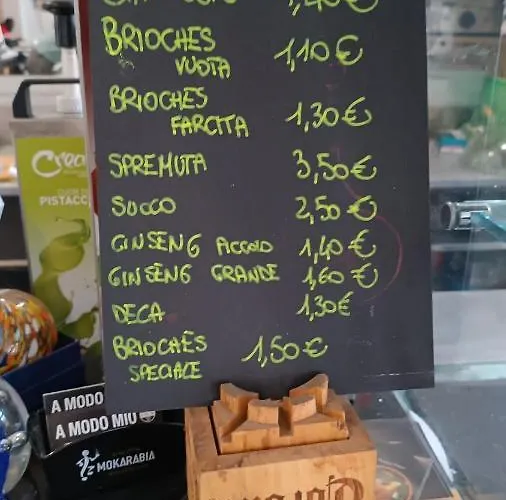 BRIOCHES 1,10 €
VUOTA
BRIOCHES
FARCITA 1,30 €
SPREMUTA 3,50 €
SUCCO 2,50 €
GINSENG PICCOLO 1,40 €
GINSENG GRANDE 1,60 €
DECA 1,30 €
BRIOCHES 1,50 €
SPECIALE
PISTACC
A MODO
A MODO MIO
MOKARABIA